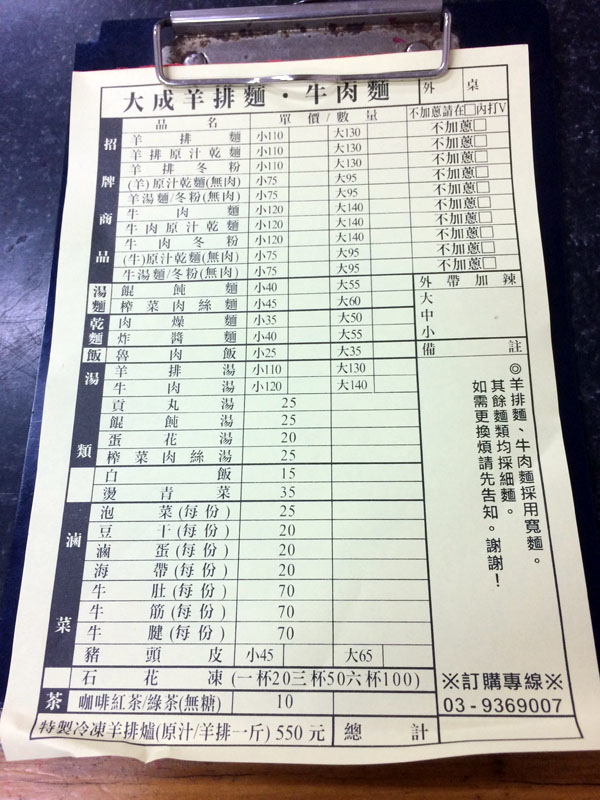 大成羊排麵・牛肉麵 外 桌
品名 單價/數量 不加蔥請在□內打V
招牌商品
羊排麵 小110 大130 不加蔥□
羊排原汁乾麵 小110 大130 不加蔥□
羊排冬粉 小110 大130 不加蔥□
(羊)原汁乾麵(無肉) 小75 大95 不加蔥□
羊湯麵/冬粉(無肉) 小75 大95 不加蔥□
牛肉麵 小120 大140 不加蔥□
牛肉原汁乾麵 小120 大140 不加蔥□
牛肉冬粉 小120 大140 不加蔥□
(牛)原汁乾麵(無肉) 小75 大95 不加蔥□
牛湯麵/冬粉(無肉) 小75 大95 不加蔥□
湯麵
餛飩麵 小40 大55
榨菜肉絲麵 小45 大60
乾麵
肉燥麵 小35 大50
炸醬麵 小40 大55
飯
魯肉飯 小25 大35
湯類
羊排湯 小110 大130
牛肉湯 小120 大140
貢丸湯 25
餛飩湯 25
蛋花湯 20
榨菜肉絲湯 25
白飯 15
燙青菜 35
滷菜
泡菜(每份) 25
豆干(每份) 20
滷蛋(每份) 20
海帶(每份) 20
牛肚(每份) 70
牛筋(每份) 70
牛腱(每份) 70
豬頭皮 小45 大65
石花凍 (一杯20三杯50六杯100)
茶
咖啡紅茶/綠茶(無糖) 10
特製冷凍羊排爐(原汁/羊排一斤) 550元 總計
外帶加辣
大
中
小
備註
◎羊排麵、牛肉麵採用寬麵。
其餘麵類均採細麵。
如需更換煩請先告知。謝謝！
※訂購專線※
03-9369007